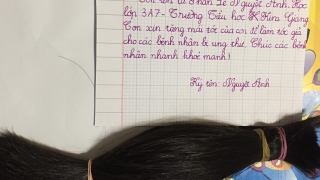 tên là Trần Lê Nguyệt Anh. Học
lớp 3A7 - Trường Tiểu học Kim Giang
Con xin tặng mái tóc của con để làm tóc giả
cho các bệnh nhân bị ung thư. Chúc các bệnh
nhân nhanh khỏi mạnh!
Ký tên: Nguyệt Anh